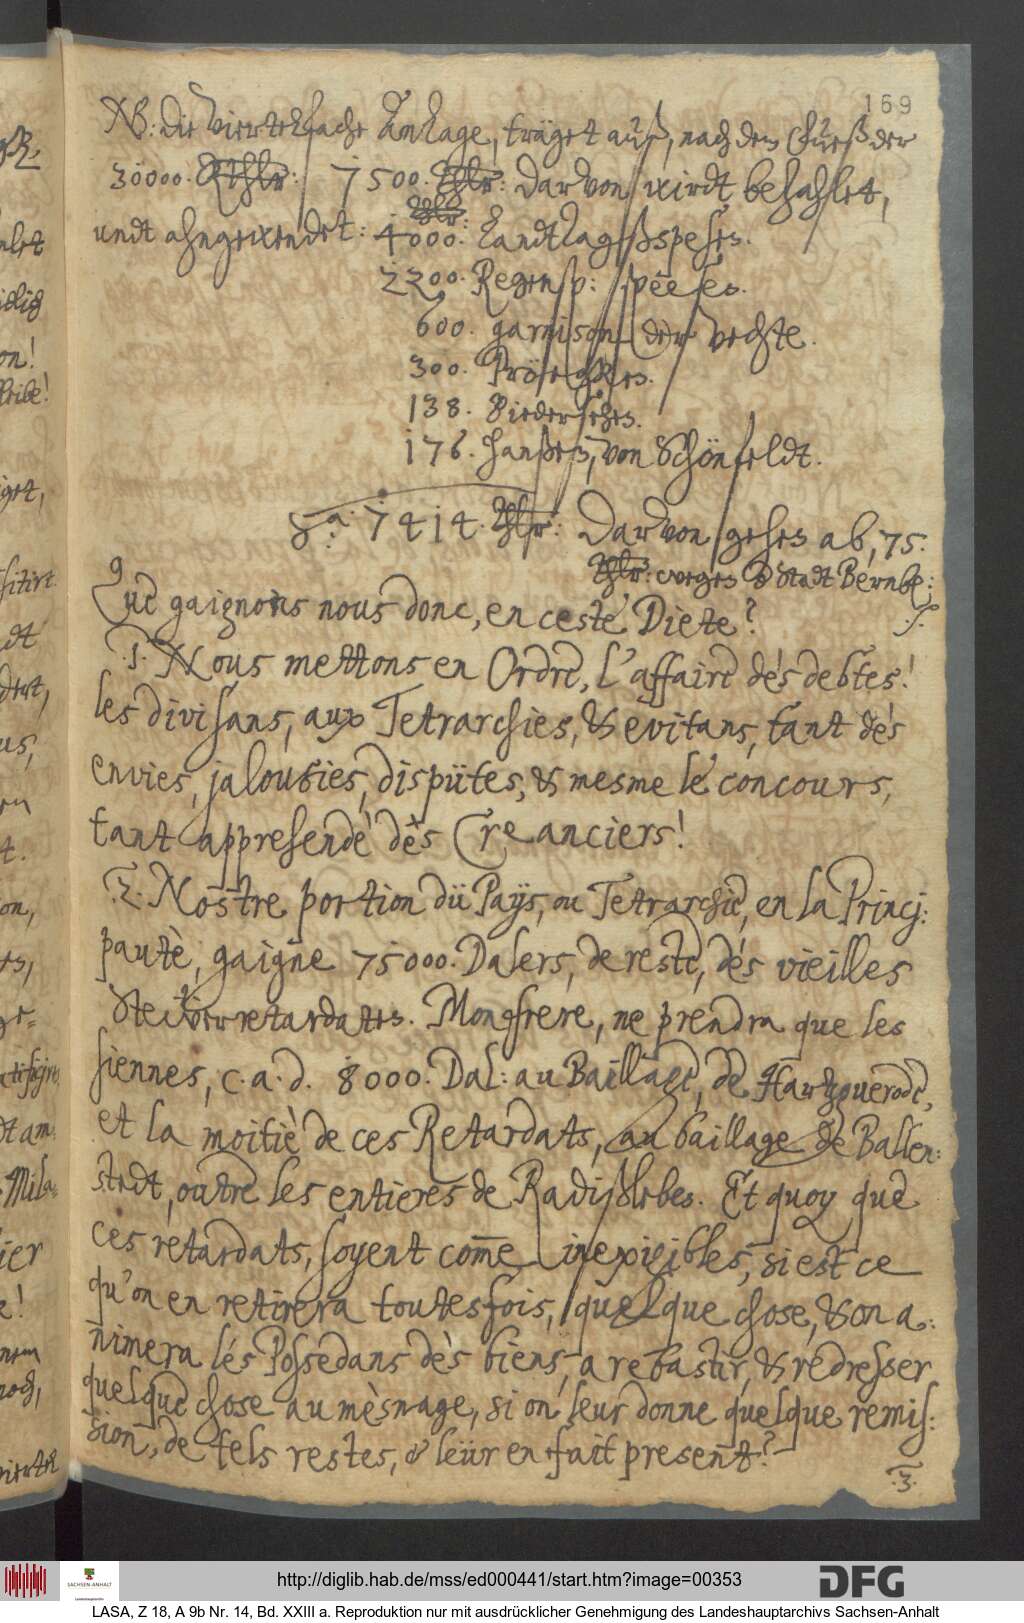 169
NB: die Viertehalfache Anlage, träget auß, nach dem Fueß der
30000. Rthlr: / 7500. Thlr: Darvon wirdt bezahlet,
undt angewendet: 4000. Thlr: Landtagßspesen.
2200. Regensp: speesen.
600. garnison der Vechte.
300. Pröegken.
138.
176. Hanßen, von Schönfeldt.
Sa: 7414. Thlr: Darvon gehen ab, 75.
Thlr: wegen d Stadt Bernb:
Que gaignons nous donc, en ceste Diete?
.1. Nous mettons en Ordre, l'affaire dés debtes!
les divisans, aux Tetrarchies, & evitans, tant dés
envies, jalousies, dispütes, & mesme le concours,
tant apprehendè dès Creanciers!
.2. Nostre portion dü Païs, ou Tetrarchie, en la Princi:
pautè, gaigne 75000. Dalers, de reste, dés vieilles
Stewerretardaten. Mon frere, ne prendra que les
siennes, c.a.d. 8000. Dal: au Baillage, de Hartzgerode,
et la moitiè de ces Retardats, au baillage de Ballen:
stedt, outre les entieres de Radißleben. Et quoy que
ces retardats, soyent com̄e inexigibles, si est ce
qu'on en retirera toutesfois, quelque chose, & on a:
nimera lés Possedans dès biens, a rebastir, & redresser
quelque chose au mèsnage, si on leur donne quelque remis:
sion, de tels restes, & leür en fait present?
.3.
http://diglib.hab.de/mss/ed000441/start.htm?image=00353
DFG
SACHSEN-ANHALT
LASA, Z 18, A 9b Nr. 14, Bd. XXIII a. Reproduktion nur mit ausdrücklicher Genehmigung des Landeshauptarchivs Sachsen-Anhalt